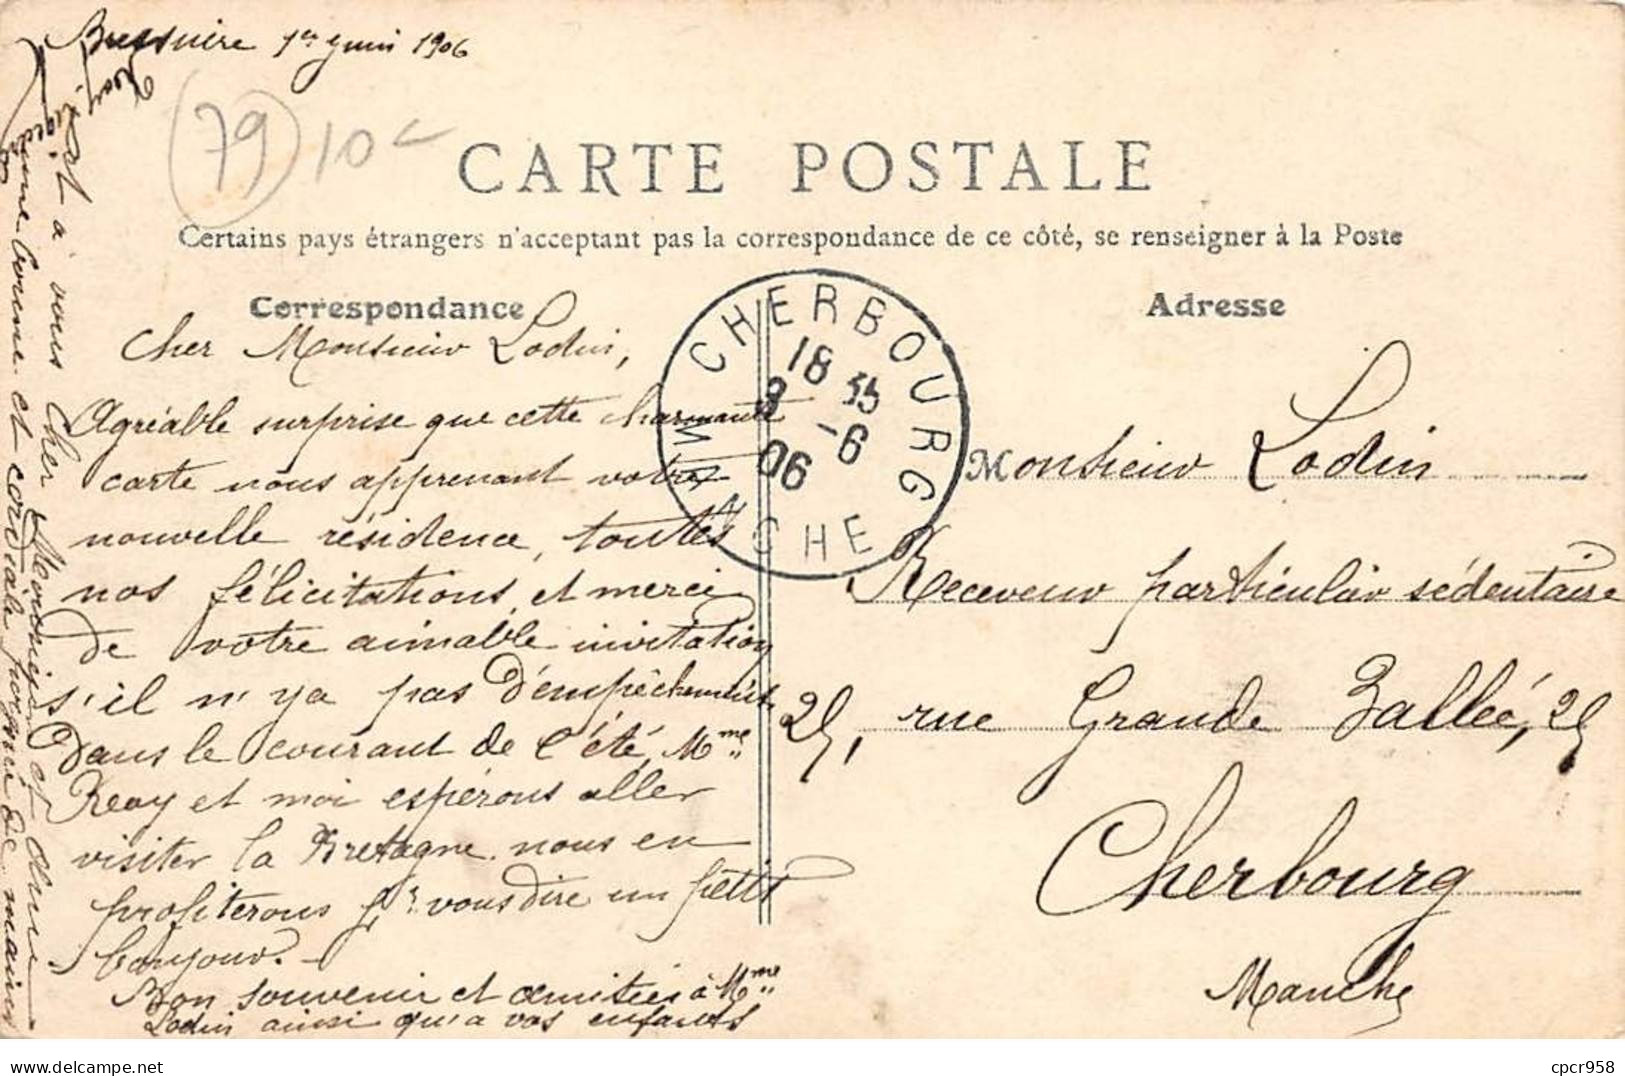 Bressuire 1er Juin 1906
79 10c
CARTE POSTALE
Certains pays étrangers n'acceptant pas la correspondance de ce côté, se renseigner à la Poste
Correspondance
Adresse
Cher Monsieur Lodin,
Agréable surprise que cette charmante
carte nous apprenant votre
nouvelle résidence, toutes
nos félicitations, et merci
de votre aimable invitation
s'il n'y a pas d'empêchement
dans le courant de l'été, Mme
Reay et moi espérons aller
visiter la Bretagne. nous en
profiterons pr vous dire un petit
bonjour.
Bon souvenir et amitiés à Mme
Lodin ainsi qu'à vos enfants
et à vous Cher Monsieur et Ami
une bonne et cordiale poignée de main
Reay
CHERBOURG
18 35
3 -6
06
MANCHE
Monsieur Lodin
Receveur particulier sédentaire
25, rue Grande Vallée, 25
Cherbourg
Manche
cpcr958